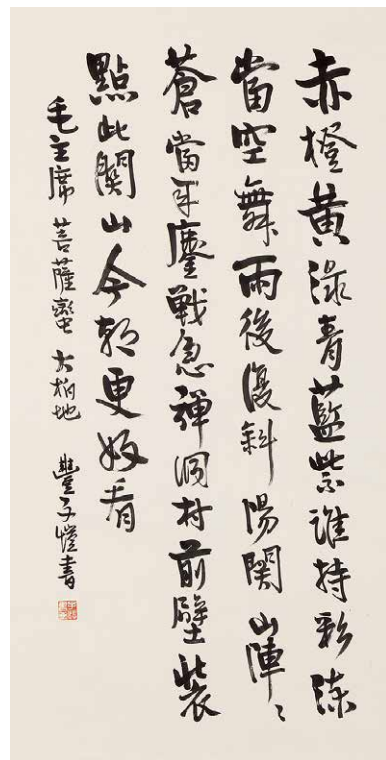 赤橙黃綠青藍紫誰持彩練
當空舞雨後復斜陽關山陣〻
蒼當年鏖戰急彈洞村前壁裝
點此關山今朝更好看
毛主席 菩薩蠻 大柏地 豐子愷書